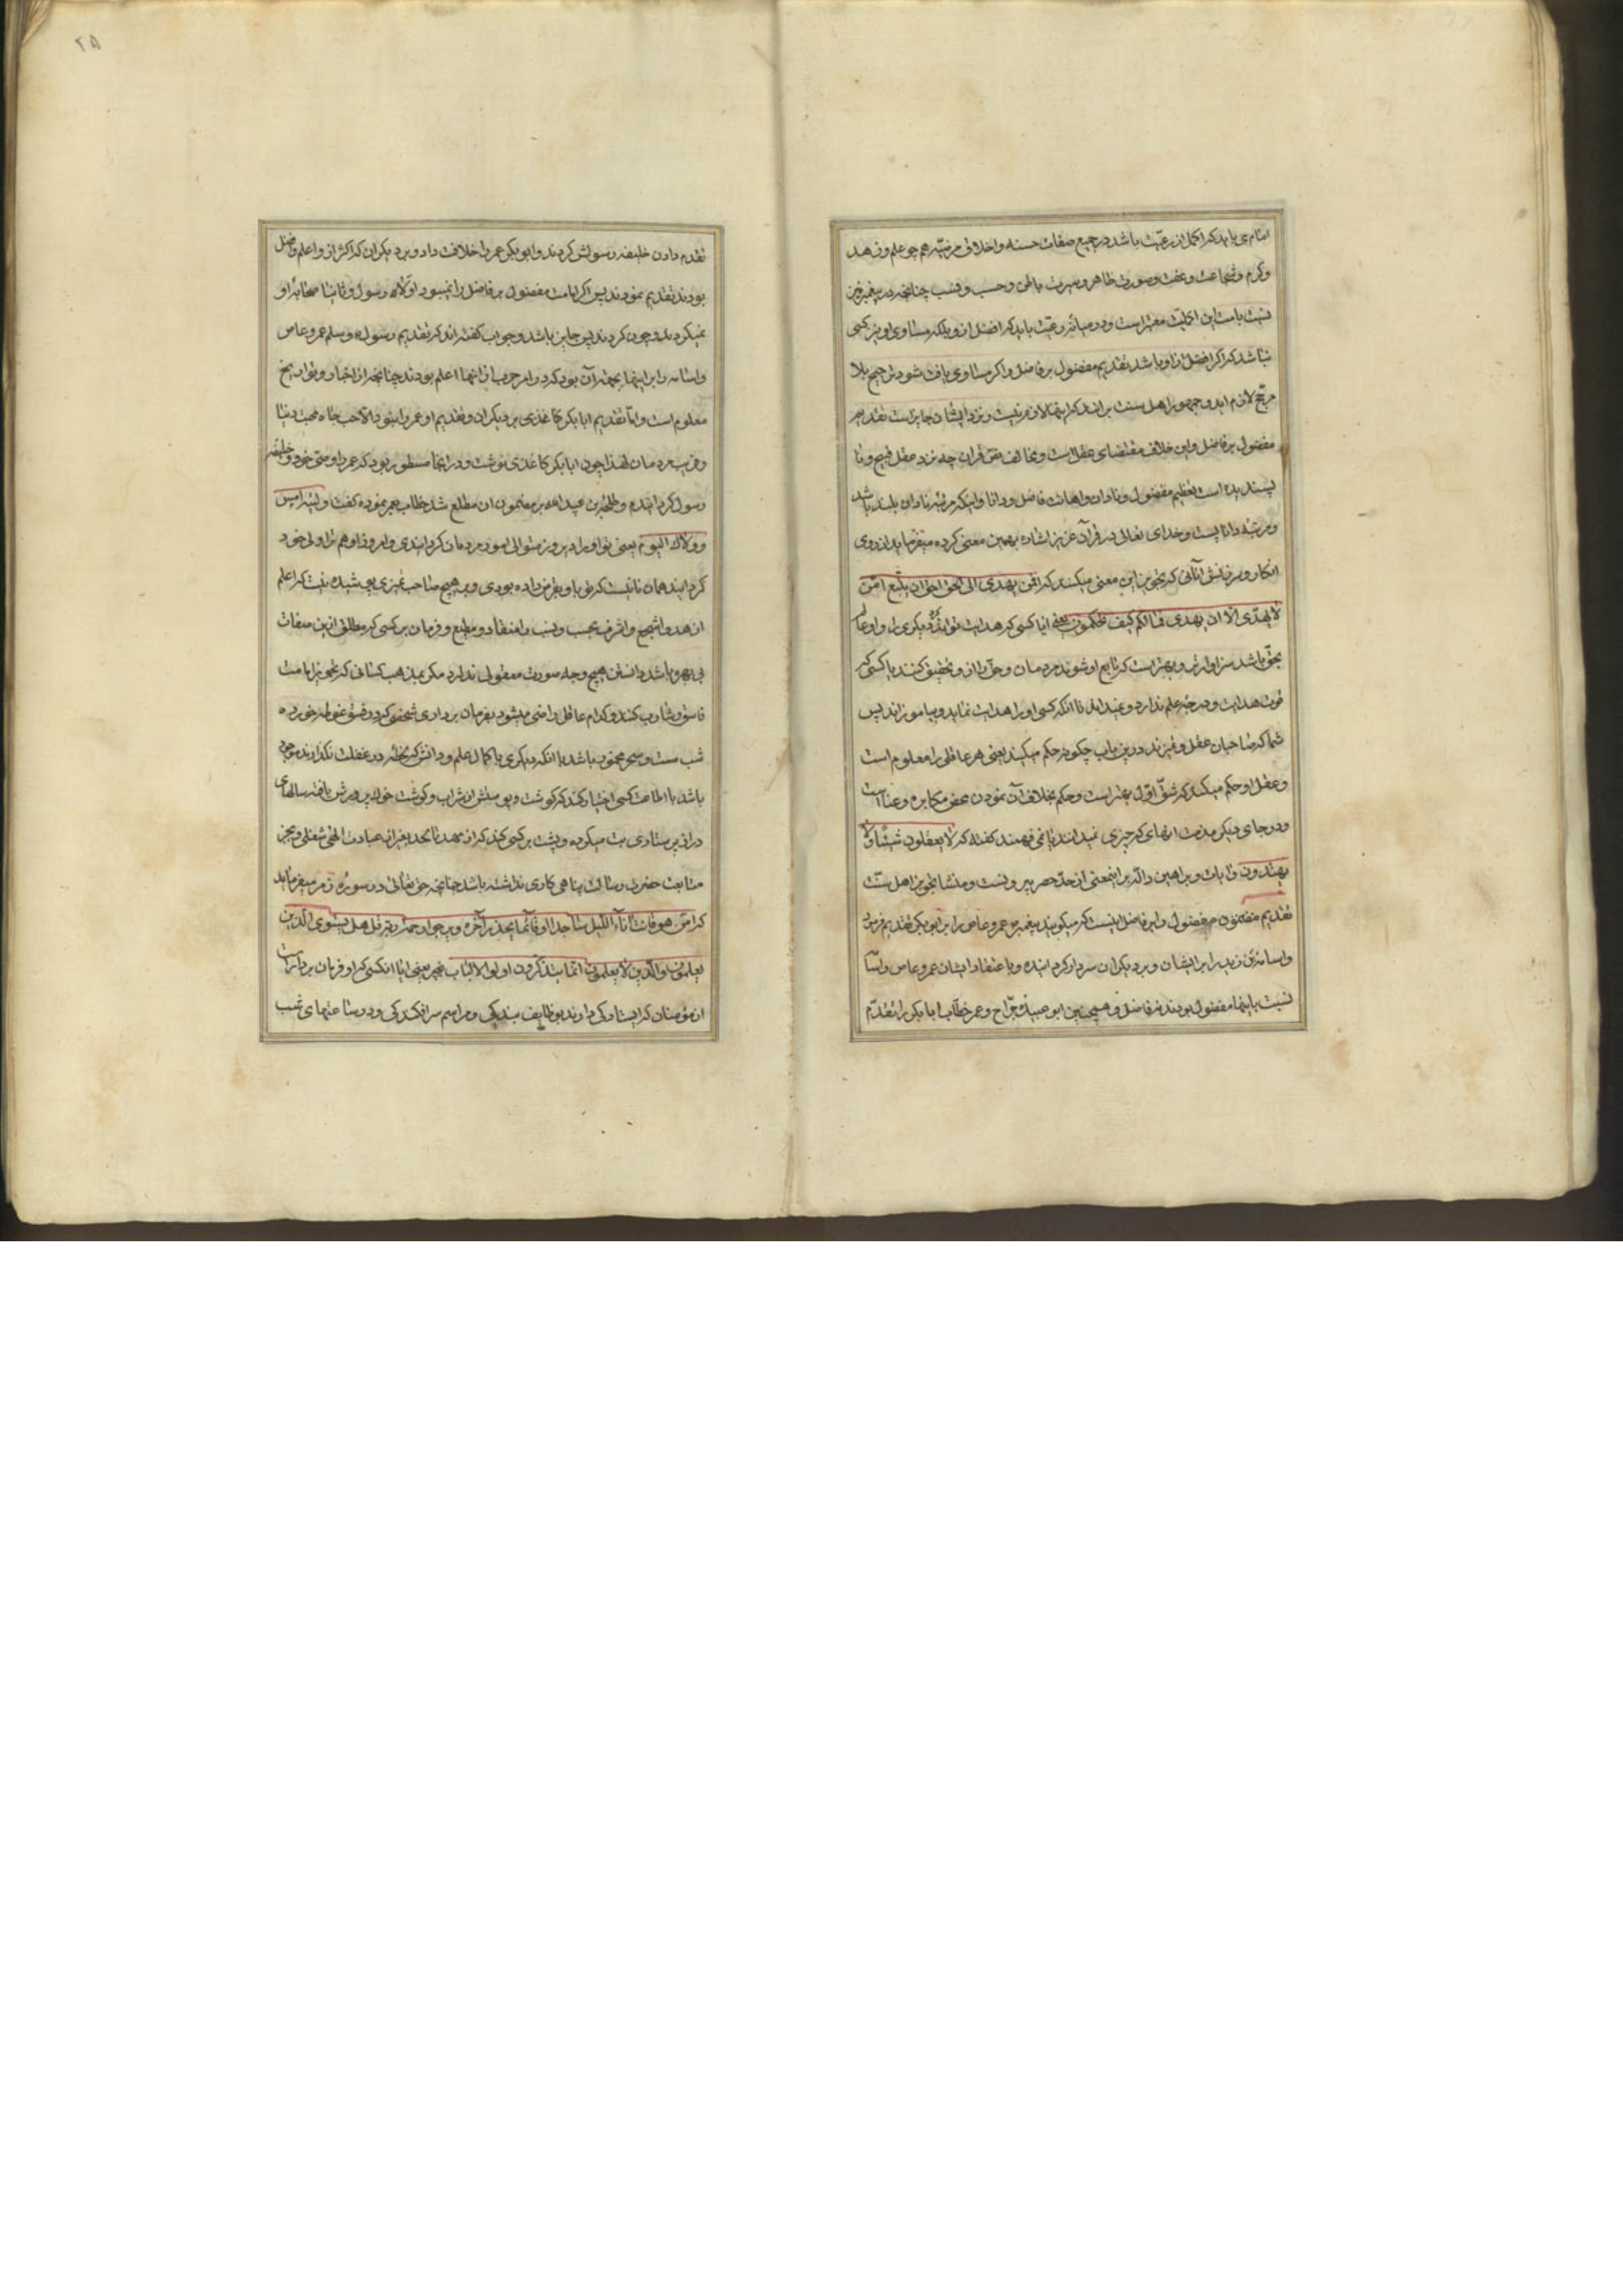 امام می باید که اکمل از رعیت باشد در جمیع صفات حسنه و اخلاق مرضیه هم چو علم و زهد
و کرم و شجاعت و عفت و صورت ظاهر و سیرت باطن و حسب و نسب چنانچه در پیغمبر نیز
نسبت بامت این اکملیت معتبر است و در میانه رعیت باید که افضل از و بلکه مساوی او نیز کسی
نباشد که اگر افضل از او باشد تقدیم مفضول بر فاضل و اگر مساوی یافت شود ترجیح بلا
مرجح لازم اید و جمهور اهل سنت برانند که اینها لازم نیست و نزد ایشان جایز است تقدیم
مفضول بر فاضل و این خلاف مقتضای عقل است و مخالف نص قران چه نزد عقل قبیح و نا
پسندیده است تعظیم مفضول و نادان و اهانت فاضل و دانا و اینکه مرتبه نادان بلند باشد
و مرتبه دانا پست و خدای تعالی در قرآن عزیز اشاره بهمین معنی کرده میفرماید از روی
انکار و سرزنش آنانی که تجویز این معنی میکنند که افمن یهدی الی الحق احق ان یتبع امّن
لا یهدّی الا ان یهدی فما لکم کیف تحکمون یعنی ایا کسی که هدایت تواند کرد دیکری را و او عالم
بحق باشد سزاوارتر و بهتر است که تابع او شوند مردمان و حق را از و تحقیق کنند یا کسی که
قوت هدایت و درجه علم ندارد و نمیداند تا آنکه کسی او را هدایت نماید و بیاموزاند پس
شما که صاحبان عقل و تمیزند درین باب چکونه حکم میکنید یعنی هر عاقلی را معلوم است
و عقل او حکم میکند که شق اول بهتر است و حکم بخلاف آن نمودن محض مکابره و عناد است
و در جای دیکر مذمت انهای که چیزی نمیدانند یا نمی فهمند کفته که لا یعقلون شیئا و لا
یهتدون و ایات و براهین داله بر اینمعنی از حد حصر بیرونست و منشا تجویز اهل سنت
تقدیم مفضول را بر فاضل اینست که میکویند پیغمبر عمرو عاص را بر ابوبکر تقدیم فرمود
و اسامه بن زید را بر ایشان و بر دیکران سردار کردانیده و با عتقاد ایشان عمرو عاص و اسامه
نسبت باینها مفضول بودند نه فاضل و همچنین ابو عبیده جراح و عمر خطاب ابا بکر را تقدم
۲۵
تقدم دادن خلیفه رسولش کردند و ابو بکر عمر را خلافت داد و بر دیکران که اکثر از و اعلم و افضل
بودند تقدیم نمودند پس اکر امامت مفضول بر فاضل را نمیبود اولا رسول و ثانیا صحابه او
نمیکردند و چون کردند پس جایز باشد و جواب کفته اند که تقدیم رسول عمرو عاص
و اسامه را بر اینها بجهة آن بود که در امر حرب از انها اعلم بودند چنانچه از اخبار و تواریخ
معلوم است و اما تقدیم ابا بکر بر دیکران و تقدیم او عمر را نبود الا حب جاه محبت دنیا
و فریب مردمان لهذا چون ابا بکر کاغذی نوشت و در انجا مسطور بود که عمر را وصی خود و خلیفه
رسول کردانیدم و طلحة بن عبید الله بر مضمون ان مطلع شد خطاب بعمر نموده کفت ولیته امس
و ولاك الیوم یعنی تو او را دیروز متولی امور مردمان کردانیدی و امروز او هم ترا ولی خود
کردانید همان نانیست که تو باو بقرض داده بودی و بر هیچ صاحب تمیزی پوشیده نیست که اعلم
ازهد و اشجع و اشرف بحسب و نسب را منقاد و مطیع و فرمان بر کسی که مطلق ازین صفات
بی بهره باشد دانستن هیچ وجه صورت معقولی ندارد مکر بمذهب کسانی که تجویز امامت
فاسق و شارب کنند و کدام عاقل راضی میشود بفرمان برداری شخصی که در فسق غوطه خورده
شب مست و سحر مخمور باشد با انکه دیکری با کمال علم و دانش که لحظه در غفلت نکذارند موجود
باشد یا اطاعت کسی اختیار کند که کوشت و پوستش از شراب و کوشت خوك پرورش یافته سالهای
دراز پرستاری بت میکرده و پشت بر کسی کند که از مهد تا لحد بغیر از عبادت الهی شغلی و بجز
متابعت حضرت رسالت پناهی کاری نداشته باشد چنانچه حق تعالی در سوره زمر میفرماید
که امّن هو قانت آناء اللیل ساجدا او قائما یحذر الآخرة و یرجوا رحمة ربه قل هل یستوی الذین
یعلمون والذین لا یعلمون انما یتذکرون اولوا الالباب یعنی ایا انکسی که او فرمان بردار است
از مؤمنان که ایستادکی دارند بوظایف بندکی و مراسم سرافکندکی و در ساعتهای شب